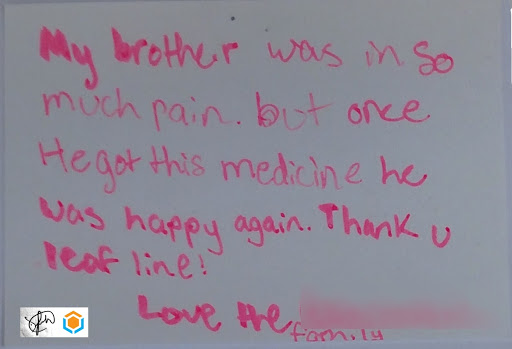 My brother was in so
much pain. but once
He got this medicine he
was happy again. Thank u
leaf line!
Love the
family